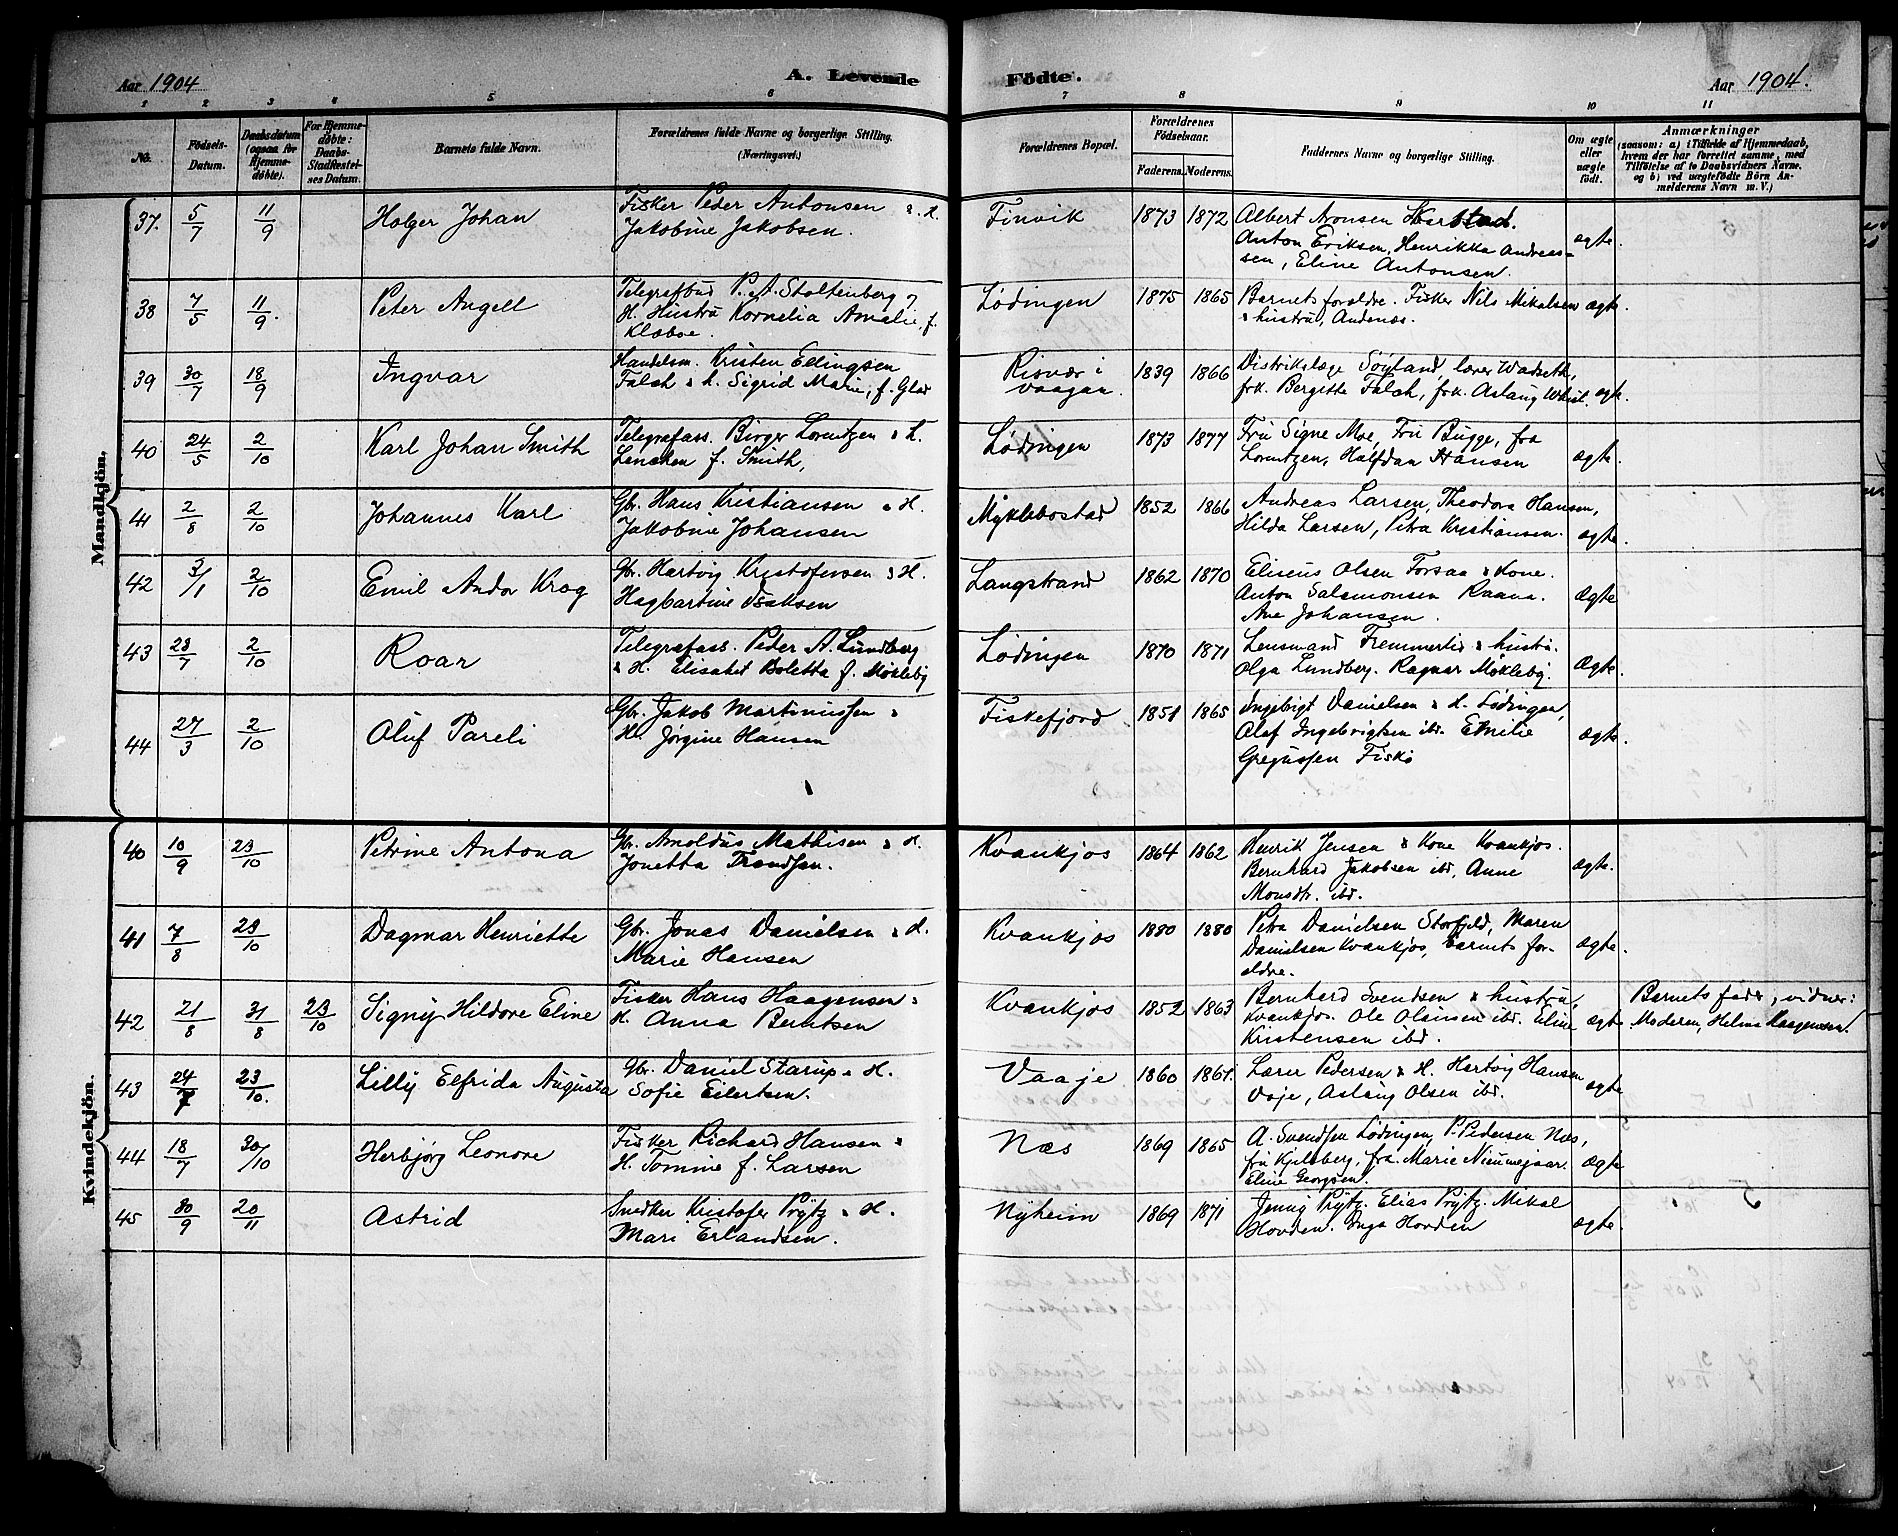 Aar 1904
A. Levende
Födte.
Aar 1904.
1 2 3 4 5 6 7 8 9 10 11
No.
Födsels-Datum.
Daabsdatum (ogsaa for Hjemmedöbte).
For Hjemmedöbte: Daabs-Stadfæstelses Datum.
Barnets fulde Navn.
Forældrenes fulde Navne og borgerlige Stilling.
(Næringsvei.)
Forældrenes Bopæl.
Forældrenes Födselsaar.
Faderens. Moderens.
Faddernes Navne og borgerlige Stilling.
Om ægte eller uægte födt.
Anmærkninger
(saasom: a) i Tilfælde af Hjemmedaab,
hvem der har forrettet samme, med
Tilföielse af to Daabsvidners Navne,
og b) ved uægtefödte Börn An-
melderens Navn m. V.)
Mandkjön.
37. 5/7 11/9 Holger Johan
Fisker Peder Antonsen & H.
Jakobine Jakobsen.
Finvik 1873 1872
Albert Aronsen Skarstad.
Anton Eriksen, Henrikka Andreas-
sen, Eline Antonsen.
ægte.
38 7/5 11/9. Peter Angell
Telegrafbud P. A. Stoltenberg &
H. Hustru Kornelia Amalie, f.
Klæboe.
Lødingen 1875 1865
Barnets forældre. Fisker Nils Mikalsen
& hustru, Andenæs.
ægte.
39 30/7 18/9 Ingvar
Handelsm. Kristen Ellingsen
Falch & h. Sigrid Marie, f. Glad
Risvær i
Vaagan. 1839 1866
Distriktslæge Søyland, lærer Wadseth,
frk. Bergitte Falch, frk. Aslaug
ægte.
40 24/5 2/10 Karl Johan Smith
Telegrafass. Birger Lorentzen & h.
Lenchen f. Smith,
Lødingen 1873 1877
Fru Signe Moe, Fru Bugge, fra
Lorentzen, Halfdan Hansen
ægte.
41 2/8 2/10 Johannes Karl
Gbr. Hans Kristiansen & H.
Jakobine Johansen
Myklebostad 1852 1866
Andreas Larsen, Theodora Hansen,
Hilda Larsen, Petra Kristiansen.
ægte.
42 3/1 2/10 Emil Andor Krog
Gbr. Hartvig Kristofersen & H.
Hagbartine Isaksen
Langstrand 1862 1870
Eliseus Olsen Forsaa & Kone.
Anton Salamonsen Raana.
Ane Johansen.
Ægte
43 23/7 2/10 Roar
Telegrafass. Peder A. Lundberg
& H. Elisabet Boletta f. Møkleby
Lødingen 1870 1871
Lensmand Fremmerlid & hustru.
Olga Lundberg. Ragnar Møkleby.
Ægte.
44 27/3 2/10 Oluf Pareli
Gbr. Jakob Martinussen &
H. Jørgine Hansen
Fiskefjord 1851 1865
Ingebrigt Danielsen & H. Lødingen,
Olaf Ingebrigtsen ibd. Emelie
Gregussen Fiskø
Ægte.
Kvindekjön.
40 10/9 23/10 Petrine Antona
Gbr. Arnoldus Mathisen & H.
Jonetta Trondsen.
Kvankjos 1864 1862
Henrik Jensen & Kone Kvankjos.
Bernhard Jakobsen ibd, Anne
Monsdtr. ibd.
Ægte.
41 7/8 23/10 Dagmar Henriette
Gbr. Jonas Danielsen & H.
Marie Hansen
Kvankjos 1880 1880
Petra Danielsen Storfjeld, Maren
Danielsen Kvankjos, Barnets for-
ældre.
Ægte.
42 21/8 31/8 23/10 Signy Hildore Eline
Fisker Hans Haagensen &
H. Anna Berntsen
Kvankjos 1852 1863
Bernhard Svendsen & hustru,
Kvankjos. Ole Olaisen ibd. Eline
Kristensen ibd.
ægte
Barnets fader, vidner:
Moderen, Helma Haagensen.
43 24/7 23/10. Lilly Elfrida Augusta
Gbr. Daniel Starup & H.
Sofie Eilertsen.
Vaaje 1860 1861.
Lærer Pedersen & H. Hartvig Hansen
Vaje, Aslaug Olsen ibd.
ægte
44 18/7 30/10 Herbjørg Leonore
Fisker Richard Hansen &
H. Tomine f. Larsen
Næs 1869 1865
A. Svendsen Lødingen, P. Pedersen Næs,
fru Kjelsberg, fra. Marie Nieumejaar.
Eline Georgsen.
Ægte
45 30/9 20/11 Astrid
Snedker Kristofer Prytz & H.
Mari Erlandsen.
Nyheim 1869 1871
Jenny Prytz. Elias Prytz. Mikal
Hovden. Inga Hovden
ægte.